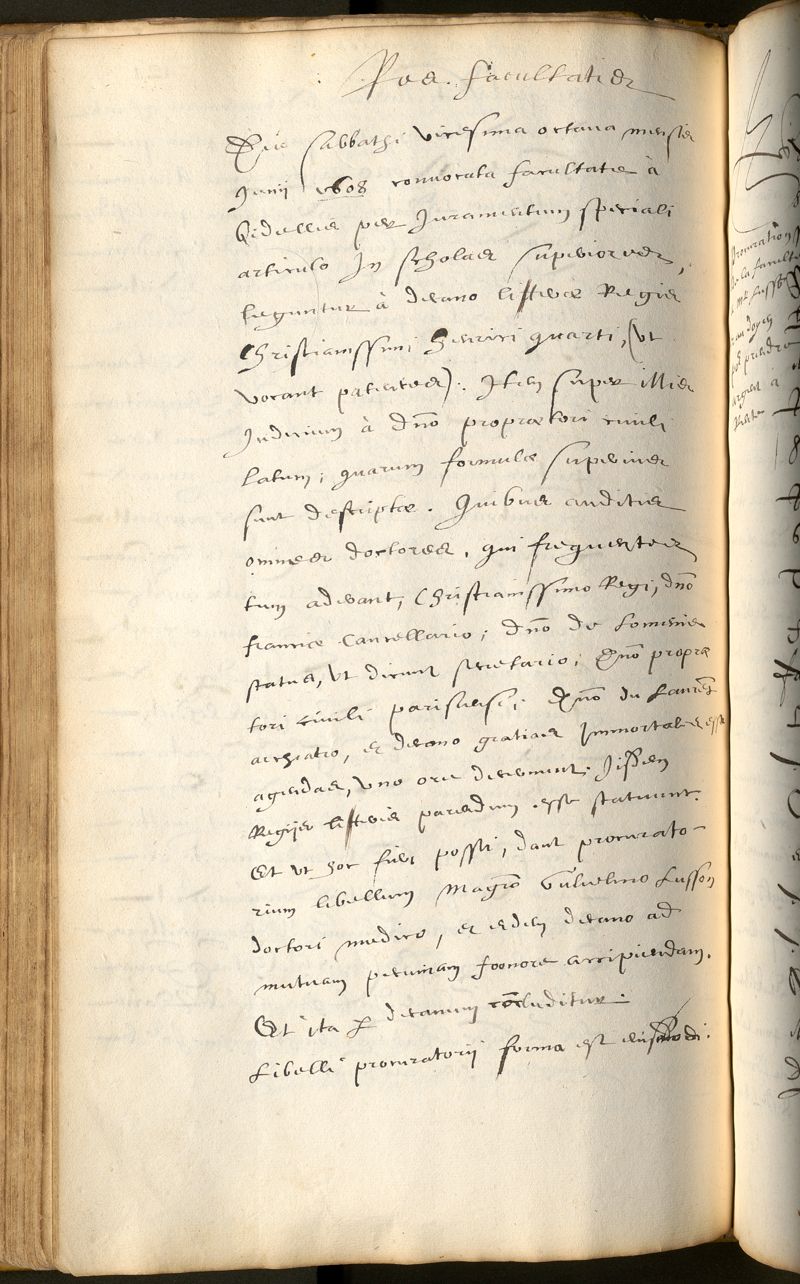 Res. facultatis
Die sabbathi vicesima octava mensis
Junij 1608 convocata facultate à
Bidellis per Juramentum speciali
articulo In scholas superiores,
leguntur à decano litteræ Regis
Christianissimi Henrici quarti, (ut
vocant patentes). Item super illis
Judicium à dno proprætori civili
latum; quarum formulæ superius
sunt descriptæ. Quibus auditis
omnes doctores, qui frequentes
tum aderant, Christianissimo Regi, dno
franciæ Cancellario; dno de Lomenie
status, ut dicunt secretario; Dno propræ
tori civili parisiensi; Dno du Laurens
archiatro, et decano gratias Immortales esse
agendas, uno ore decernunt; Jisdem
Regijs litteris parendum esse statuunt.
Et ut hoc fieri possit, dant procurato-
rium libellum Magro Gulielmo Lusson
doctori medico, et eidem decano ad
mutuam pecuniam foenore accipiendam.
Et ita per decanum concluditur.
Libelli procuratorij forma est eiusmodi.
Procuration
de la faculté
à Mr Lusson
au doyen
por prendre
argent à